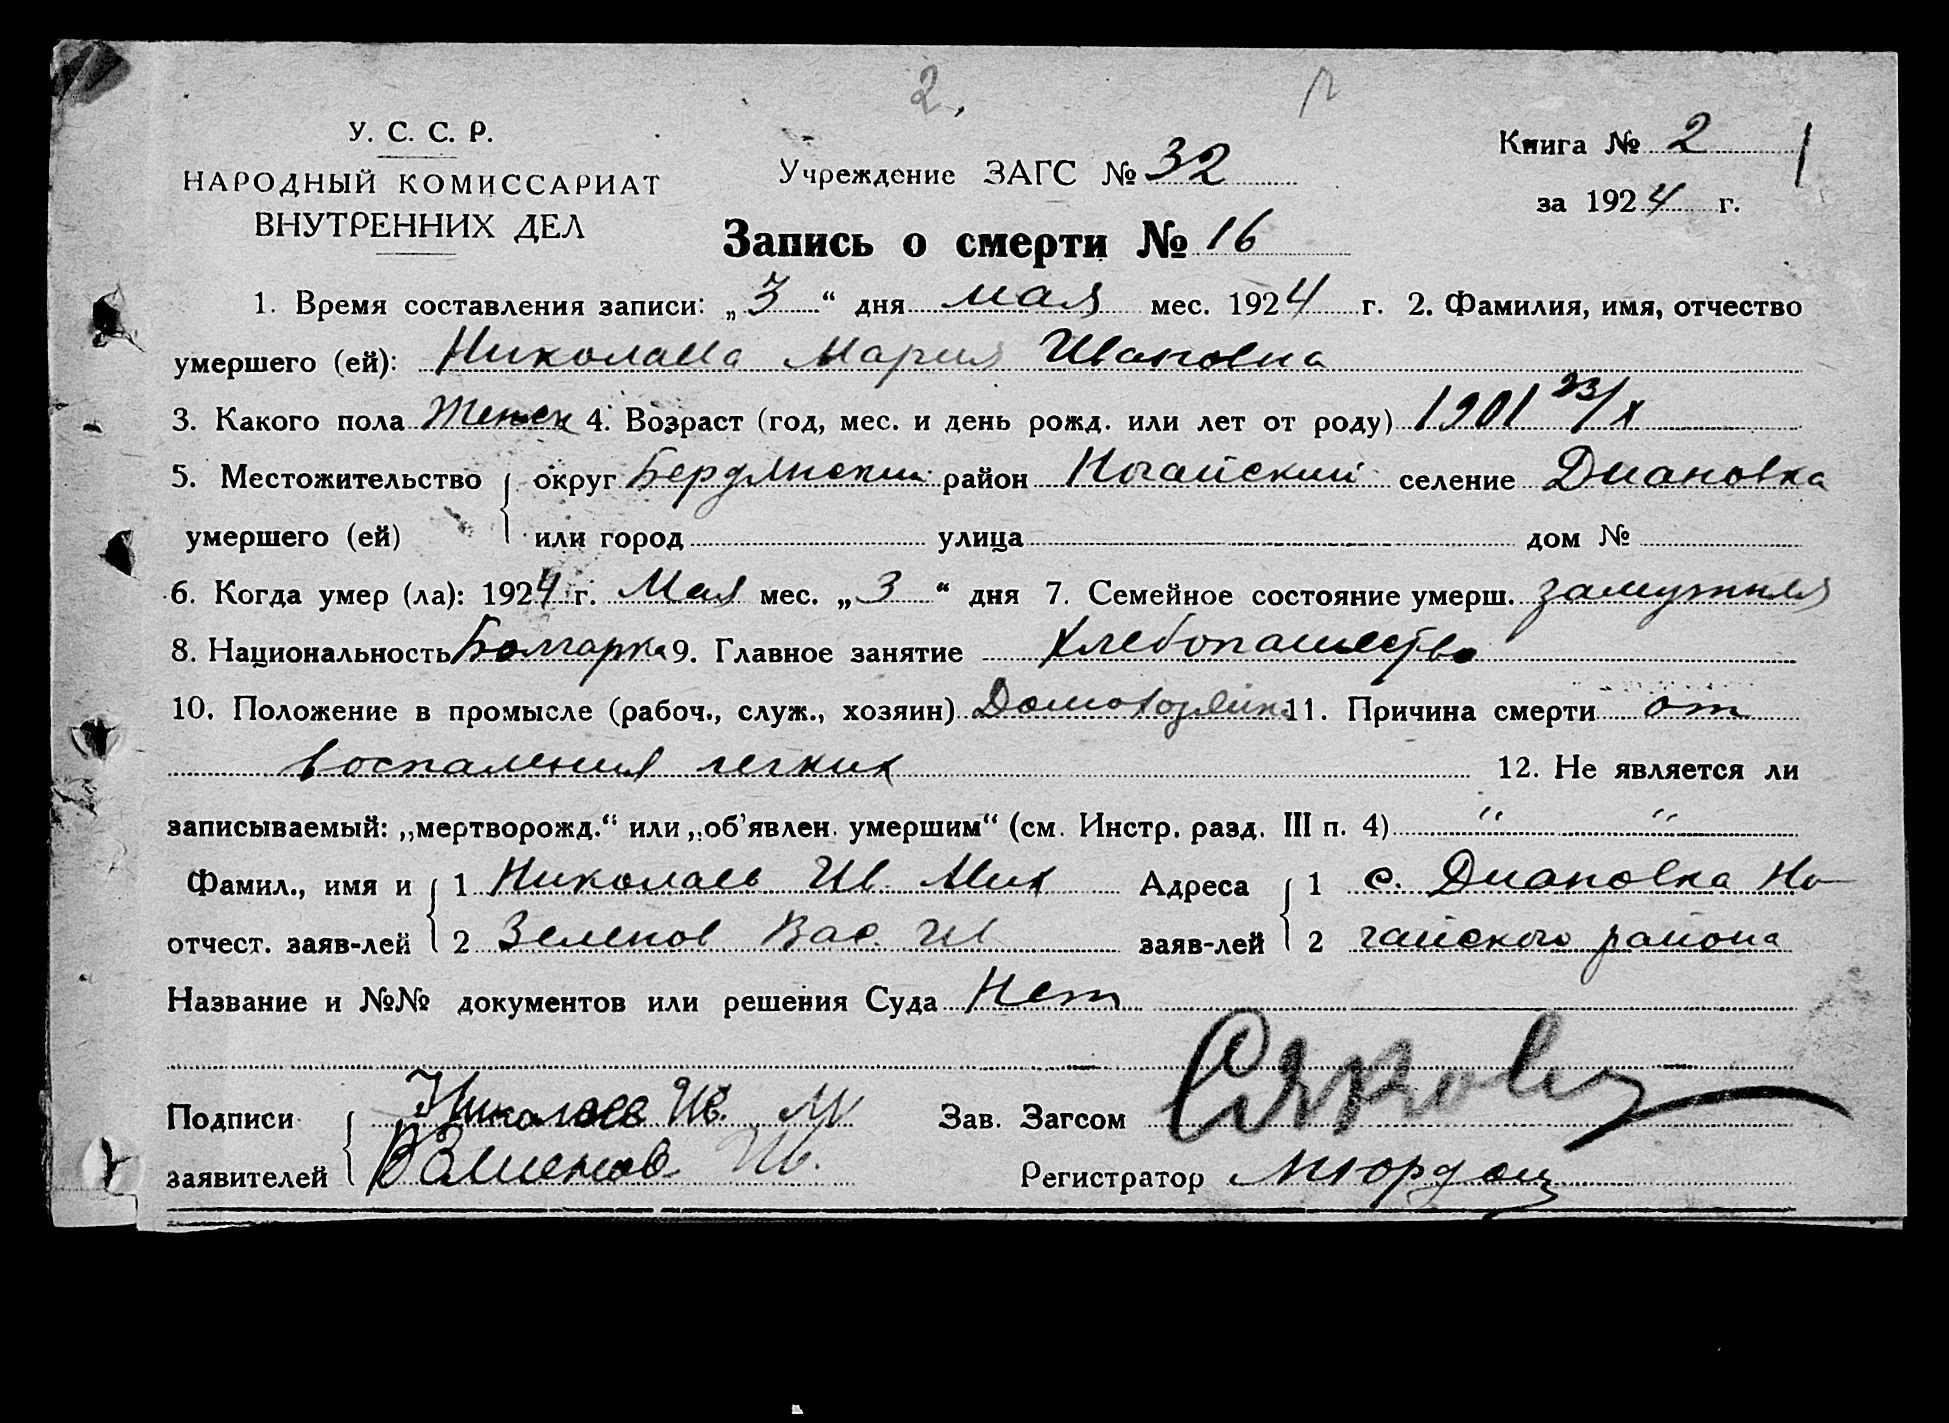 2.
У. С. С. Р.
НАРОДНЫЙ КОМИССАРИАТ
ВНУТРЕННИХ ДЕЛ
Учреждение ЗАГС № 32
Книга № 2
за 1924 г.
Запись о смерти № 16
1. Время составления записи: „3“ дня мая мес. 1924 г. 2. Фамилия, имя, отчество
умершего (ей): Николаева Мария Ивановна
3. Какого пола Женск 4. Возраст (год, мес. и день рожд. или лет от роду) 1901 23/X
5. Местожительство округ Бердянский район Ногайский селение Диановка
умершего (ей) или город улица дом №
6. Когда умер (ла): 1924 г. Мая мес. „3“ дня 7. Семейное состояние умерш. замужняя
8. Национальность Болгарка 9. Главное занятие хлебопашество
10. Положение в промысле (рабоч., служ., хозяин) Домохозяйка 11. Причина смерти от
воспаления легких 12. Не является ли
записываемый: „мертворожд.“ или „об’явлен. умершим“ (см. Инстр. разд. III п. 4) “ “
Фамил., имя и 1 Николаев Ив. Мих Адреса 1 с. Диановка Но-
отчест. заяв-лей 2 Зеленов Вас. Ив заяв-лей 2 гайского района
Название и №№ документов или решения Суда Нет
Подписи Николаев Ив. М Зав. Загсом
заявителей Ив. Регистратор